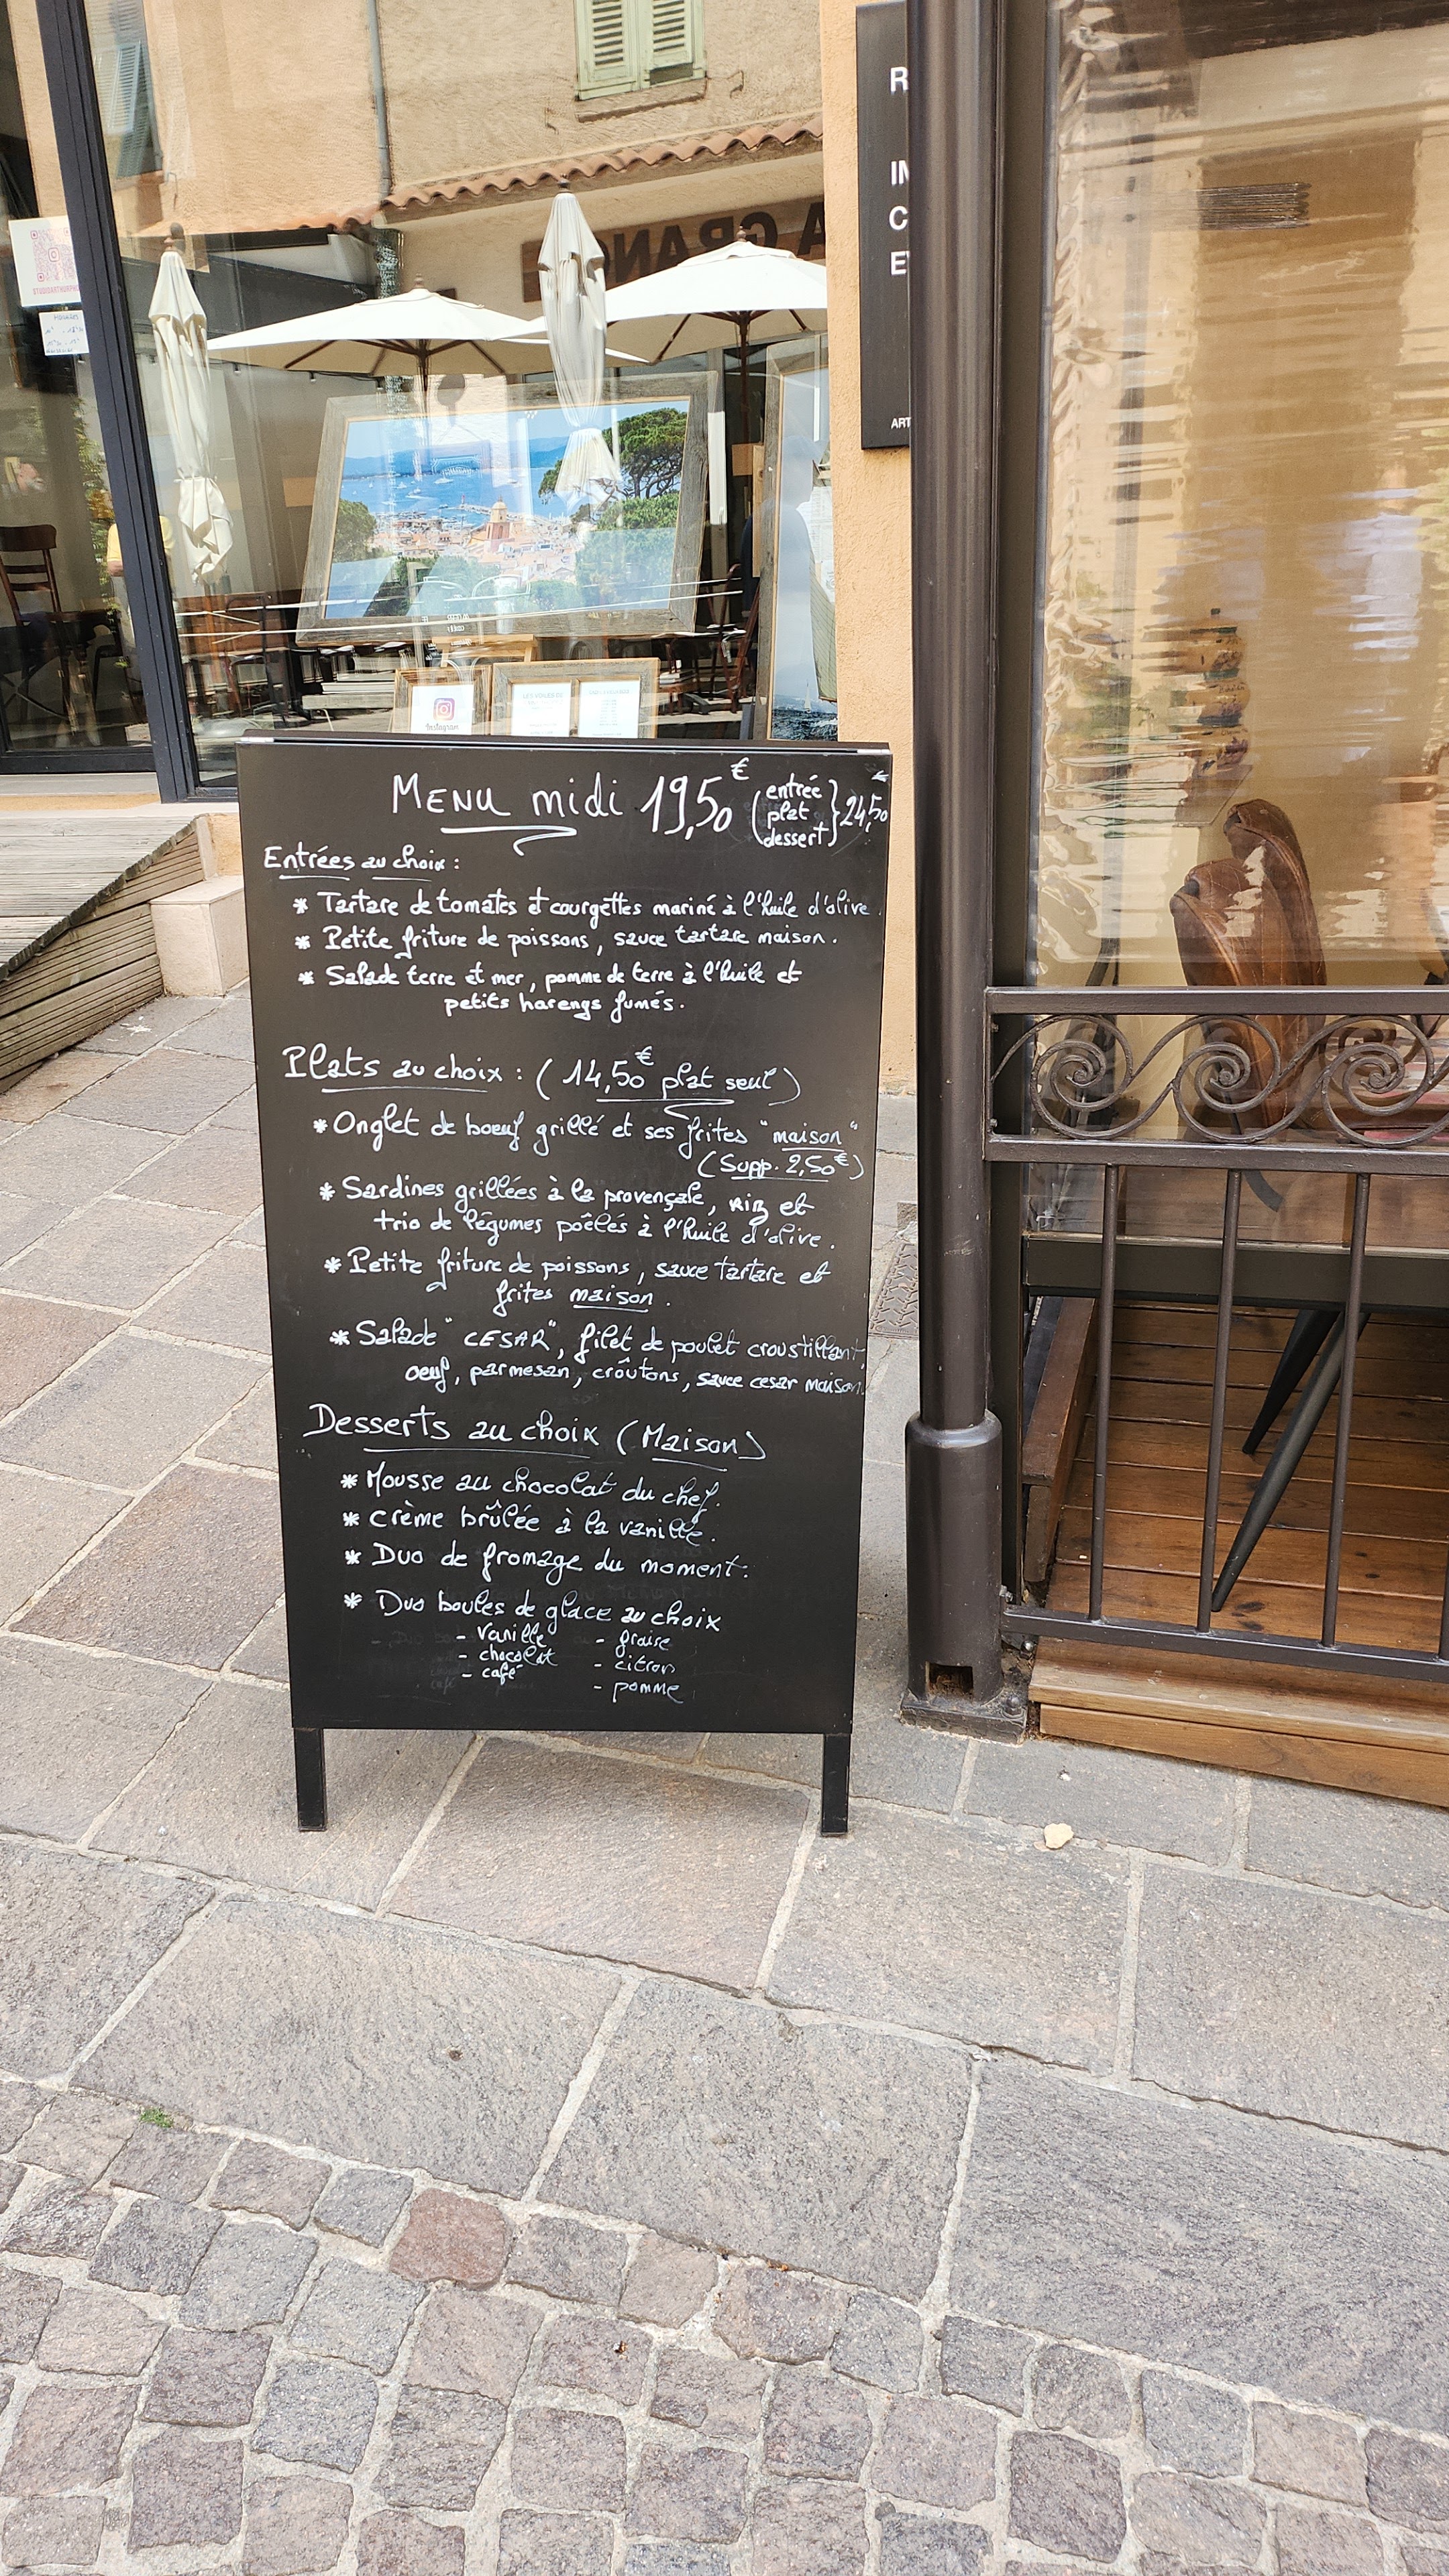 R
IN
C
E
ART
A GRANG
Instagram
MENU midi 19,50€ (entrée plat dessert} 24,50€
Entrées au choix :
* Tartare de tomates et courgettes mariné à l'huile d'olive.
* Petite friture de poissons, sauce tartare maison.
* Salade terre et mer, pomme de terre à l'huile et
petits harengs fumés.
Plats au choix : (14,50€ plat seul)
* Onglet de boeuf grillé et ses frites "maison"
(Supp. 2,50€)
* Sardines grillées à la provençale, riz et
trio de légumes poêlés à l'huile d'olive.
* Petite friture de poissons, sauce tartare et
frites maison.
* Salade "CESAR", filet de poulet croustillant,
oeuf, parmesan, croûtons, sauce cesar maison.
Desserts au choix (Maison)
* Mousse au chocolat du chef.
* Crème brûlée à la vanille.
* Duo de fromage du moment.
* Duo boules de glace au choix
- vanille - fraise
- chocolat - citron
- café - pomme